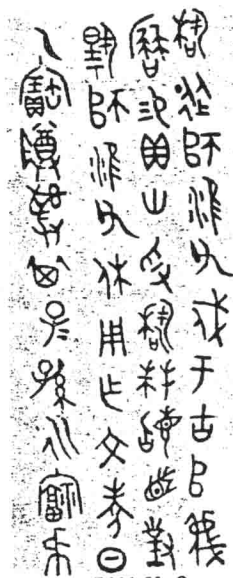 稽從師淮父戍于古𠂤蔑
曆易貝卅寽稽拜稽首對
揚師淮父休用乍文考日
乙寶尊彝其子孫永福